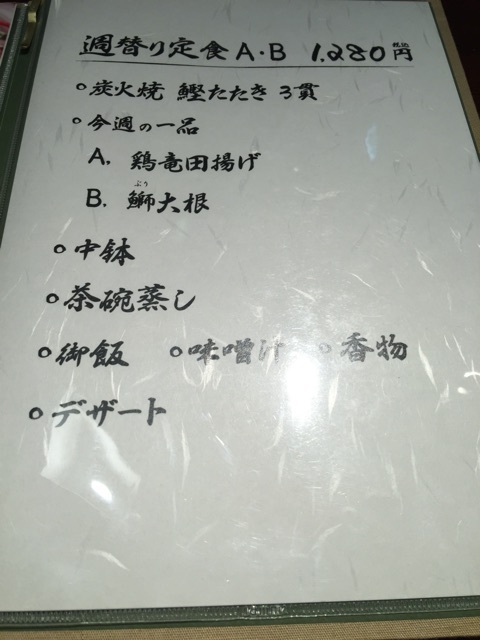 週替り定食 A・B 1,280円 税込
○炭火焼 鰹たたき 3貫
○今週の一品
A. 鶏竜田揚げ
ぶり
B. 鰤大根
○中鉢
○茶碗蒸し
○御飯 ○味噌汁 ○香物
○デザート